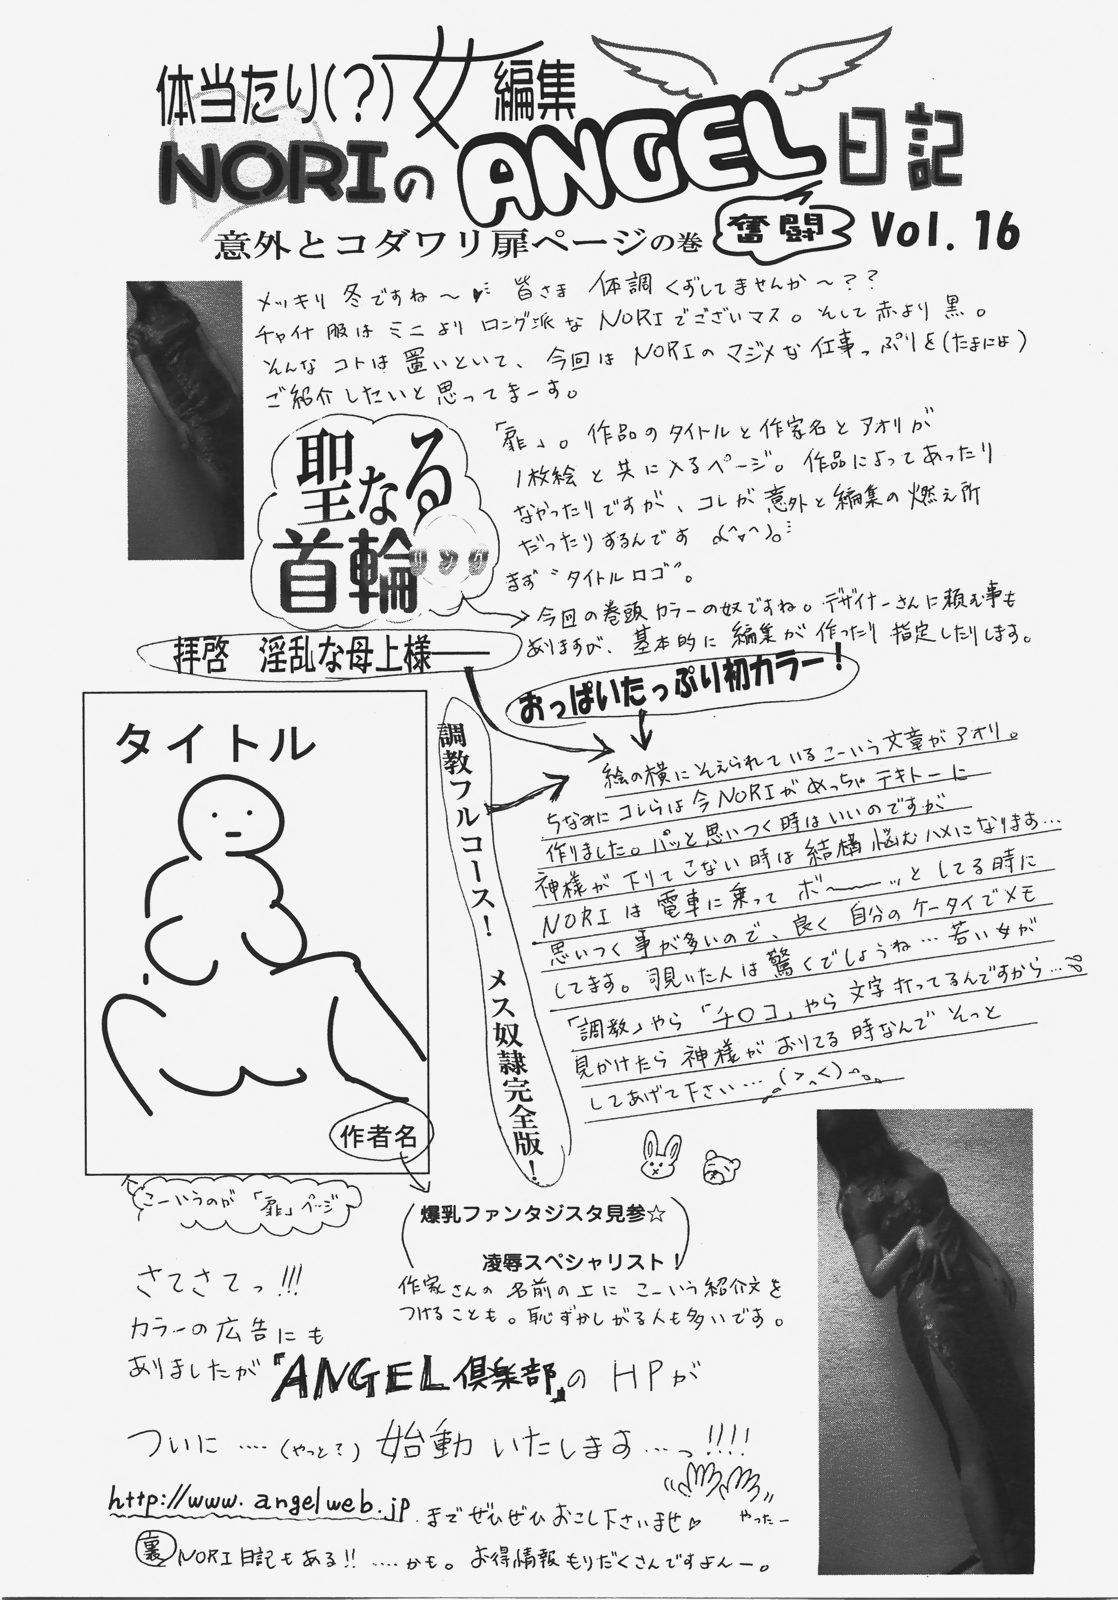 体当たり(?)女編集
NORIの ANGEL 日記
意外とコダワリ扉ページの巻 奮闘 Vol. 16
メッキリ 冬ですね〜 皆さま 体調 くずしてませんか〜??
チャイナ服は ミニより ロング派な NORIでございマス。そして赤より 黒。
そんな コトは 置いといて、今回は NORIの マジメな 仕事っぷりを(たまには)
ご紹介 したいと 思ってまーす。
聖なる
首輪
「扉」。作品のタイトルと作家名とアオリが
1枚絵 と 共に入るページ。作品によってあったり
なかったりですが、コレが意外と編集の燃え所
だったりするんです
まず "タイトルロゴ"。
今回の巻頭カラーの奴ですね。デザイナーさんに頼む事も
ありますが、基本的に 編集が 作ったり 指定したりします。
拝啓 淫乱な母上様――
おっぱいたっぷり初カラー!
調教フルコース! メス奴隷完全版!
タイトル
作者名
絵の横にそえられている こーいう文章が アオリ。
ちなみに コレらは 今NORIが めっちゃ テキトーに
作りました。パッと思いつく時はいいのですが
神様が 下りてこない時は 結構 悩むハメになります…
NORI は 電車に乗って ボ〜〜ッと してる時に
思いつく事が多いので、良く 自分のケータイでメモ
してます。覗いた人は驚くでしょうね… 若い女が
「調教」やら「チ○コ」やら 文字打ってるんですから…
見かけたら 神様が おりてる 時なんで そっと
してあげて下さい… (>_<)
こーいうのが 「扉」ページ
爆乳ファンタジスタ見参☆
凌辱スペシャリスト!
作家さんの 名前の上に こーいう紹介文を
つけることも。恥ずかしがる人も多いです。
さてさてっ!!!
カラーの広告にも
ありましたが『ANGEL倶楽部』の HPが
ついに ‥‥ (やっと?) 始動 いたします…っ!!!!
http://www.angelweb.jp まで ぜひぜひ おこし下さいませ
やったー
裏 NORI日記もある!! ‥‥かも。お得情報もりだくさんですよんー。